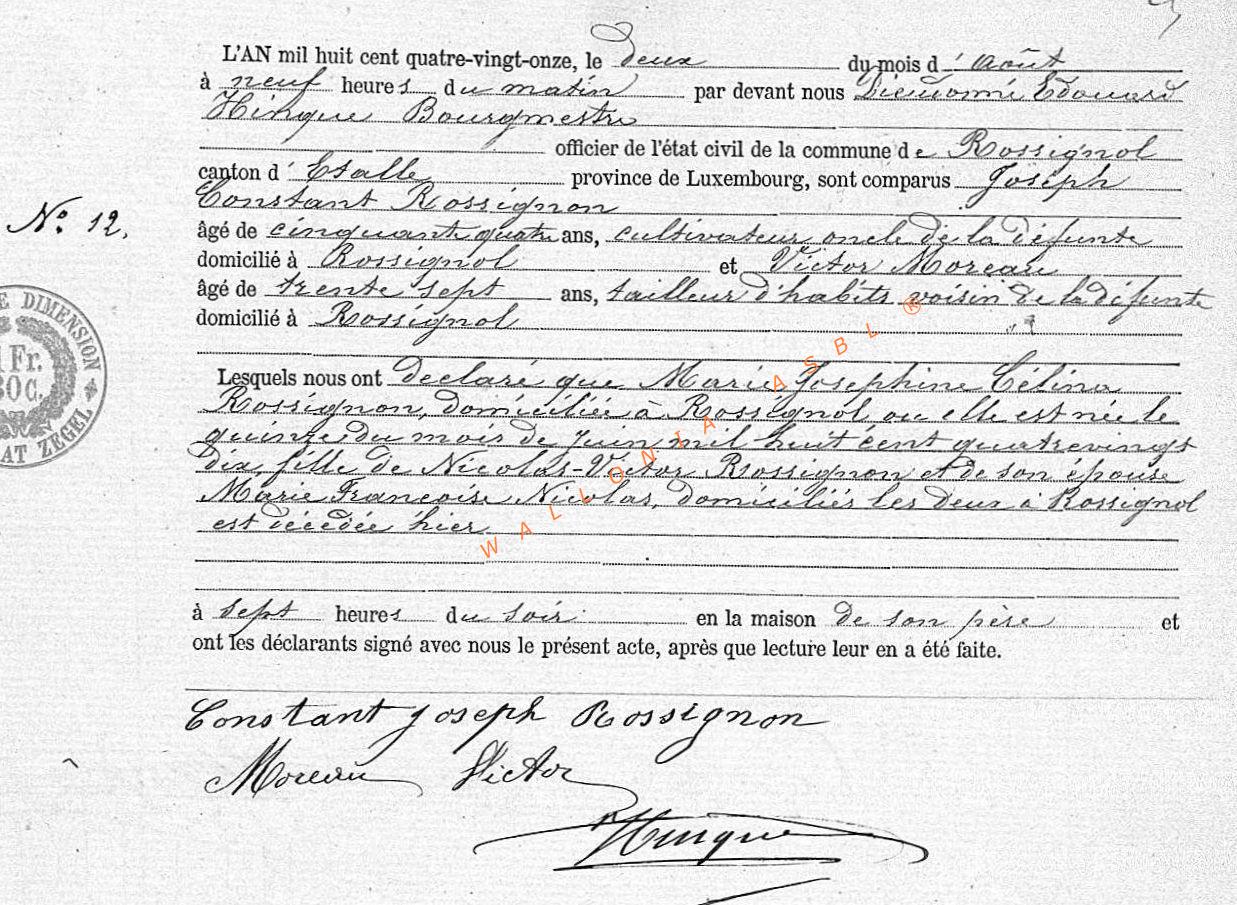 L'AN mil huit cent quatre-vingt-onze, le deux du mois d'août
à neuf heures du matin par devant nous Dieudonné Edouard
Hinque Bourgmestre
officier de l'état civil de la commune de Rossignol
canton d'Etalle province de Luxembourg, sont comparus Joseph
Constant Rossignon
N° 12.
âgé de cinquante quatre ans, cultivateur oncle de la défunte
domicilié à Rossignol et Victor Moreau
âgé de trente sept ans, tailleur d'habits voisin de la défunte
domicilié à Rossignol
E DIMENSION
1 Fr.
30C.
AT ZEGEL
Lesquels nous ont declaré que Marie Josephine Célina
Rossignon, domiciliée à Rossignol ou elle est née le
quinze du mois de juin mil huit cent quatrevingt
dix, fille de Nicolas-Victor Rossignon et de son épouse
Marie Françoise Nicolas, domiciliés les deux à Rossignol
est décédée hier
WALLONIA ASBL ®
à sept heures du soir en la maison de son père et
ont les déclarants signé avec nous le présent acte, après que lecture leur en a été faite.
Constant Joseph Rossignon
Moreau Victor
Hinque